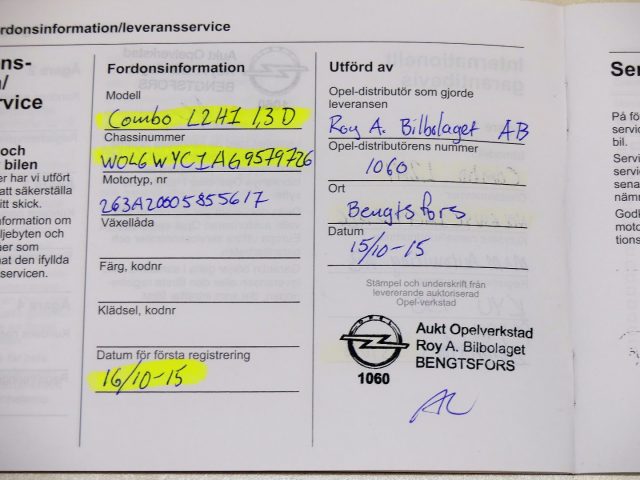 rdonsinformation/leveransservice
ons-
n/
rvice
och
r bilen
er har vi utfört
att säkerställa
tt skick.
nformation om
ljebyten och
ner som
nat den ifyllda
servicen.
Fordonsinformation
Modell
Combo L2H1 1,3 D
Chassinummer
W0L6WYC1AG9579726
Motortyp, nr
263A20005855617
Växellåda
Färg, kodnr
Klädsel, kodnr
Datum för första registrering
16/10-15
Utförd av
Opel-distributör som gjorde
leveransen
Roy A. Bilbolaget AB
Opel-distributörens nummer
1060
Ort
Bengtsfors
Datum
15/10-15
Stämpel och underskrift från
levererande auktoriserad
Opel-verkstad
OPEL
1060
Aukt Opelverkstad
Roy A. Bilbolaget
BENGTSFORS
Ser
På fö
bil.
Servi
servi
sena
nämn
God
moto
tione